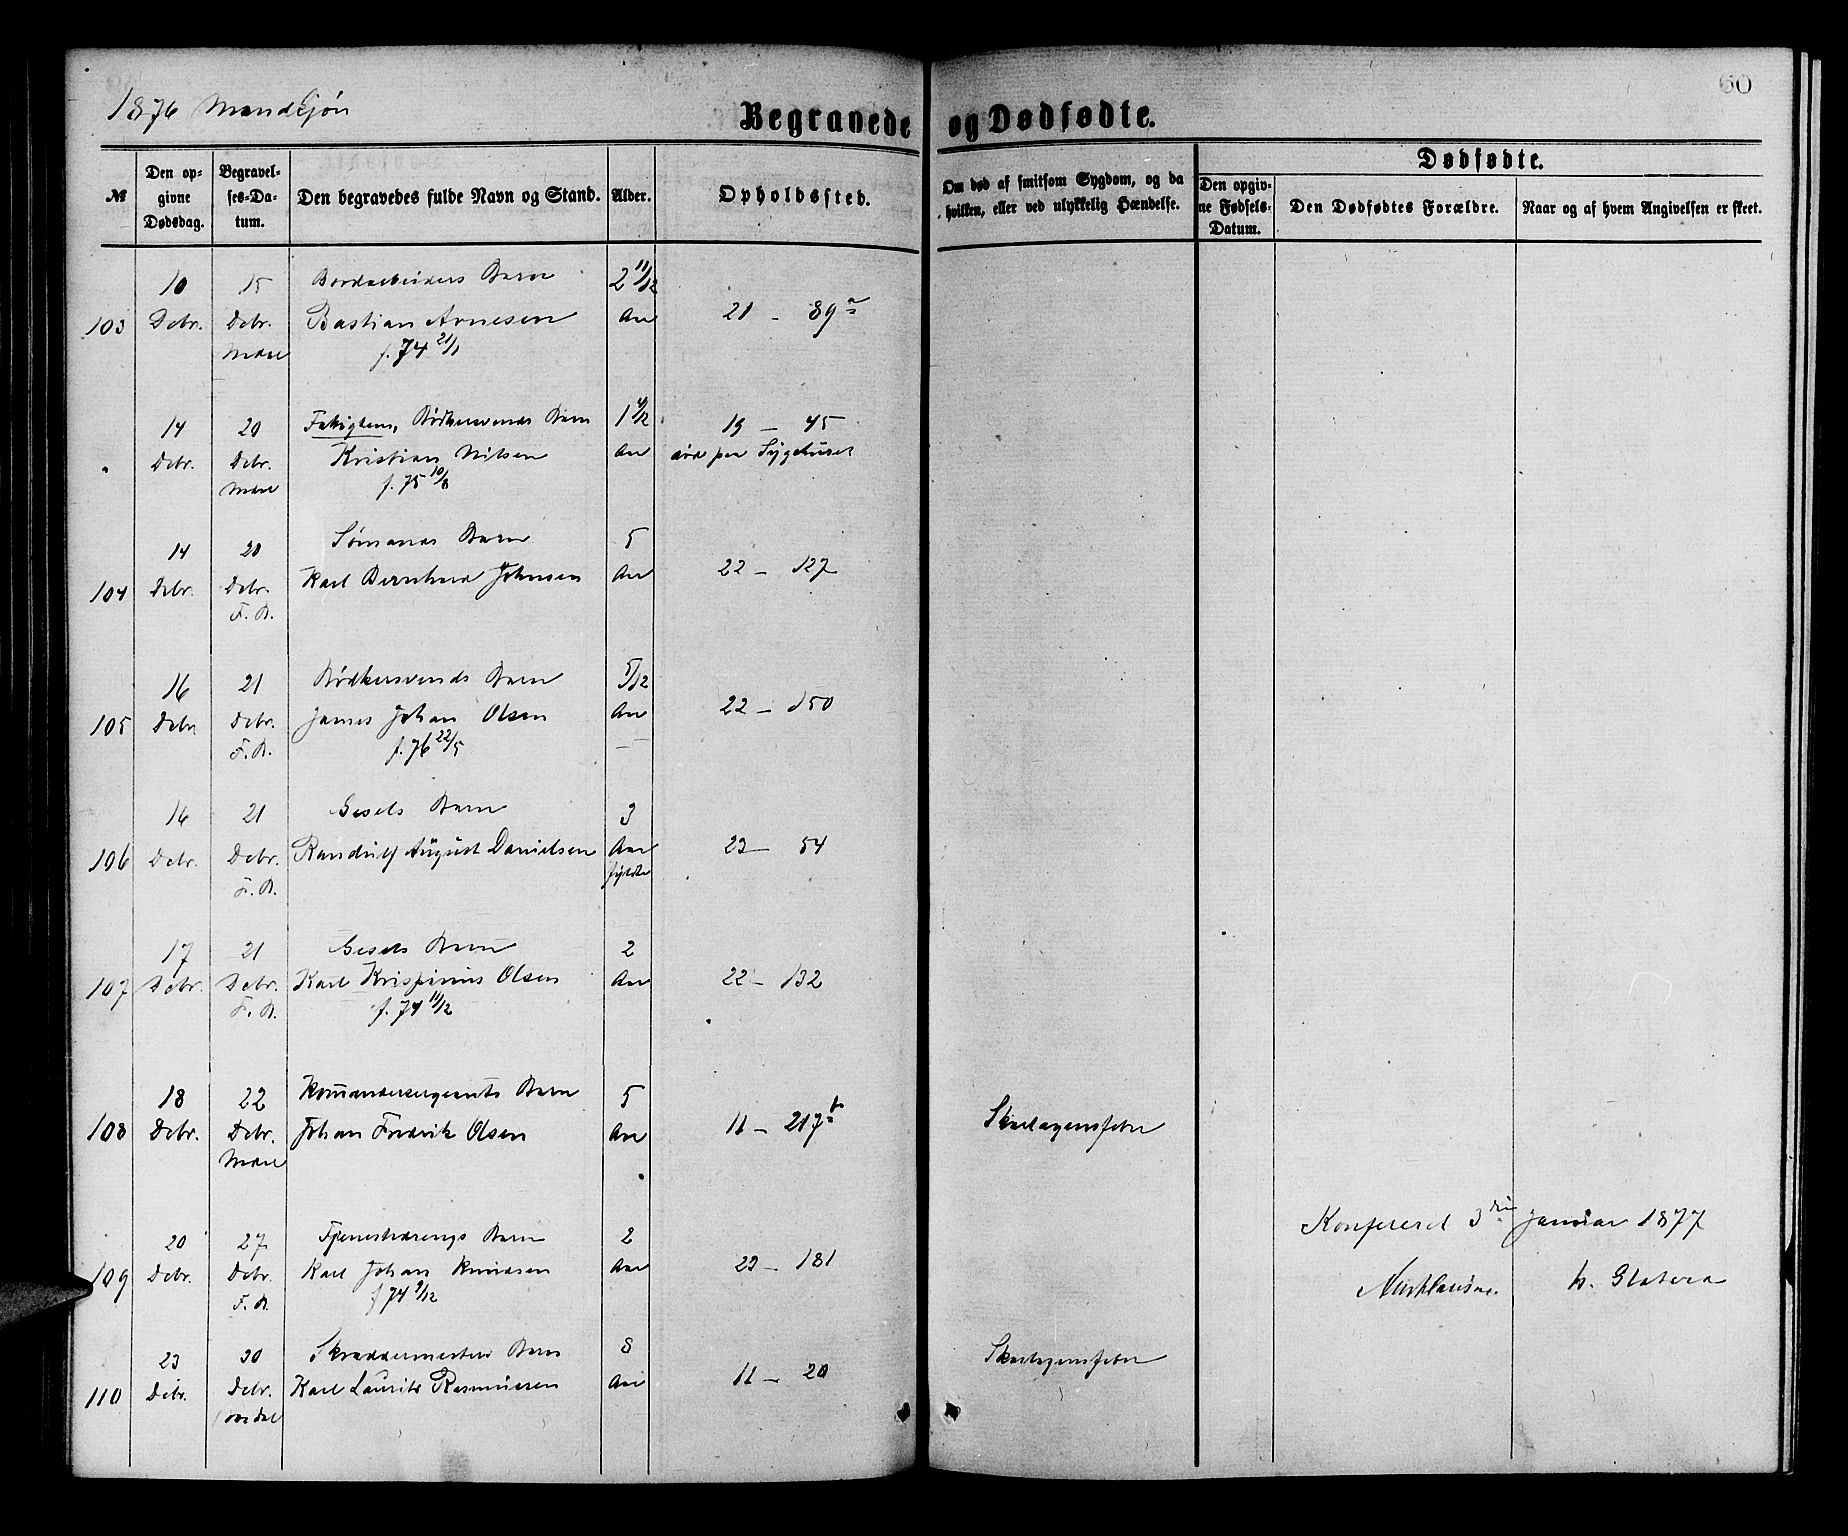 60
1876 Mandkjøn
Begravede og Dødfødte.
№
Den opgivne Dødsdag.
Begravelses-Datum.
Den begravedes fulde Navn og Stand.
Alder.
Opholdssted.
Om død af smitsom Sygdom, og da hvilken, eller ved ulykkelig Hændelse.
Dødfødte.
Den opgivne Fødsels-Datum.
Den Dødfødtes Forældre.
Naar og af hvem Angivelsen er skeet.
10 15 Bordarbeiders Barn 2 11/12
103 Debr. Debr. Bastian Arnesen Aar 21 - 89a
f. 74 21/1
14 20 Fattiglem, Bødkersvends Barn 1 4/12 19 - 45
Debr. Debr. Kristian Nilsen Aar død paa Sygehuset
f. 75 10/8
14 20 Sømands Barn 5
104 Debr. Debr. Karl Bernhard Johnsen Aar 22 - 127
F. A.
16 21 Bødkersvends Barn 5/12
105 Debr. Debr. James Johan Olsen Aar 22 - 150
F. A. f. 76 22/5
16 21 Gesels Barn 3
106 Debr. Debr. Randulf August Danielsen Aar 23 - 54
F. A. fyldte
17 21 Gesels Barn 2
107 Debr. Debr. Karl Krispinius Olsen Aar 22 - 132
F. A. f. 74 11/12
18 22 Komandersergeants Barn 5
108 Debr. Debr. Johan Fredrik Olsen Aar 11 - 217b Skarlagensfeber
20 27 Tjenestkarengs Barn 2
109 Debr. Debr. Karl Johan Knudsen Aar 23 - 181
F. A. f 74 9/12
Konfereret 3die Januar 1877
23 30 Skræddermesters Barn 8
110 Debr. Debr. Karl Laurits Rasmussen Aar 11 - 20 Skarlagensfeber